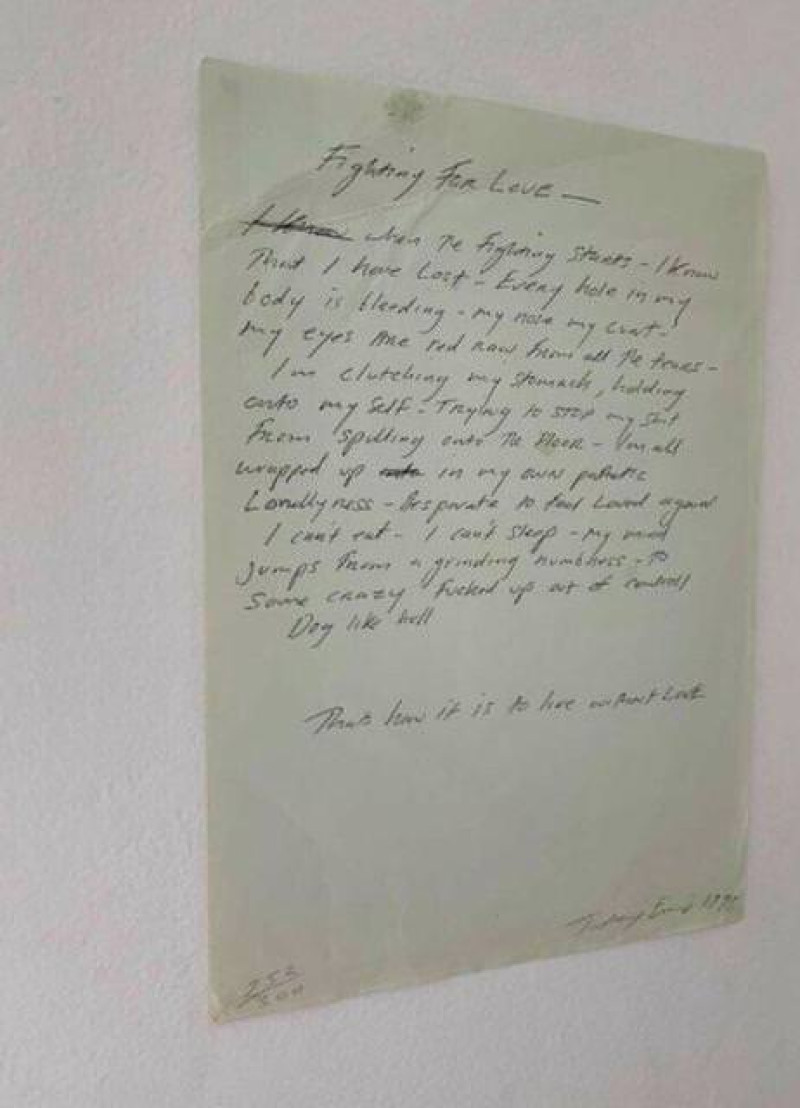 Fighting For Love —
I Know when The Fighting Starts - I Know
That I have Lost - Every hole in my
body is bleeding - my nose my cunt -
my eyes Are red raw from all The tears -
I'm clutching my stomach, holding
onto my self - Trying to stop my shit
From spilling onto The Floor - I'm all
wrapped up onto in my own pathetic
Lonellyness - Desperate to feel Loved again
I can't eat - I can't sleep - my mind
Jumps From a grinding numbness - To
Some crazy Fucked up out of control
Dog like hell
Thats how it is to live without Love
Tracey Emin
252/500